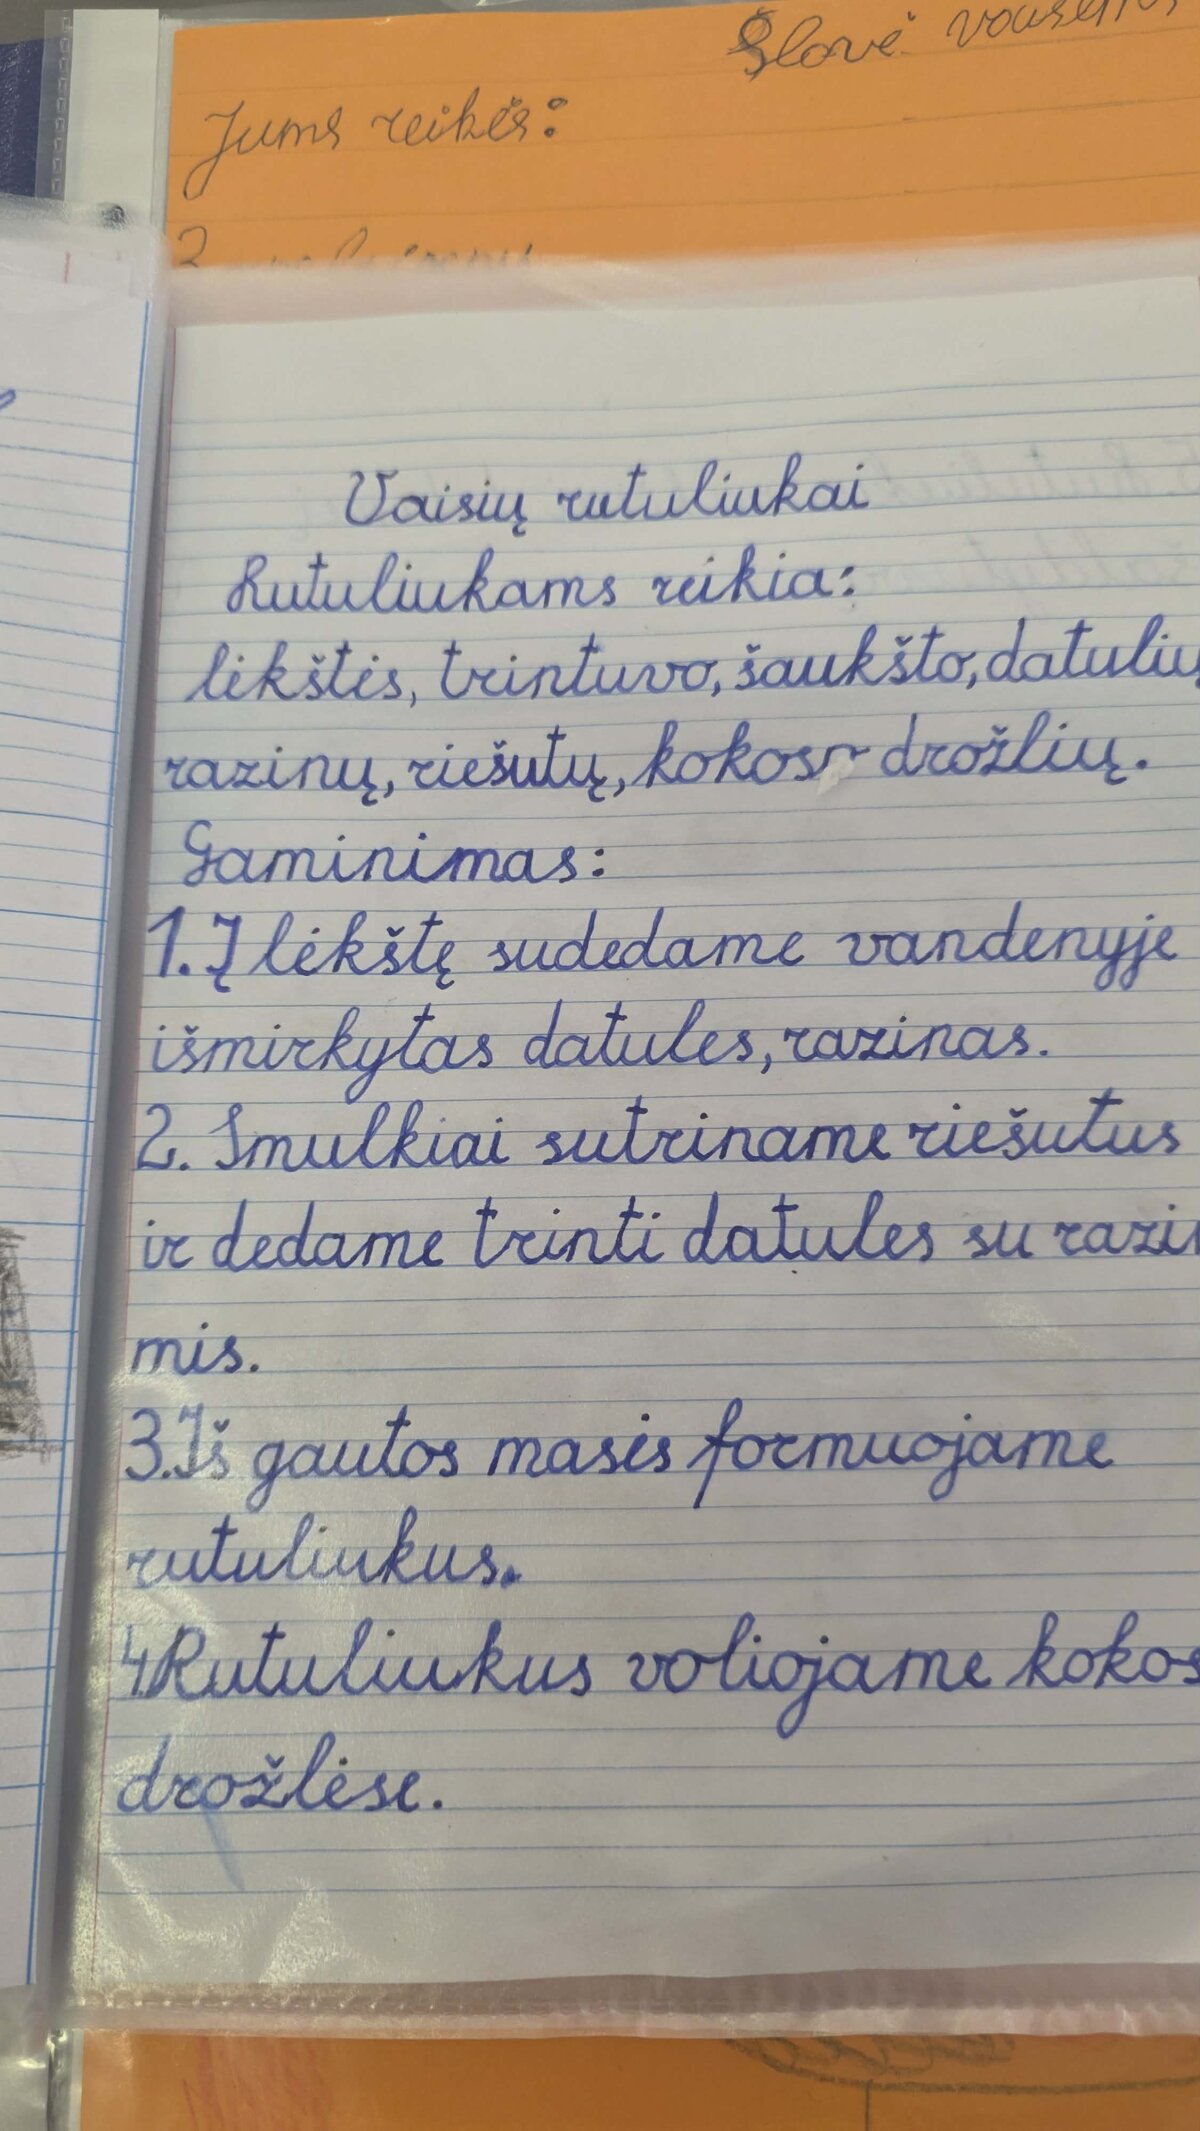 Jums reikės:
Vaisių rutuliukai
Rutuliukams reikia:
lėkštės, trintuvo, šaukšto, datulių,
razinų, riešutų, kokoso drožlių.
Gaminimas:
1. Į lėkštę sudedame vandenyje
išmirkytas datules, razinas.
2. Smulkiai sutriname riešutus
ir dedame trinti datules su razi
mis.
3. Iš gautos masės formuojame
rutuliukus.
4. Rutuliukus voliojame kokos
drožlėse.